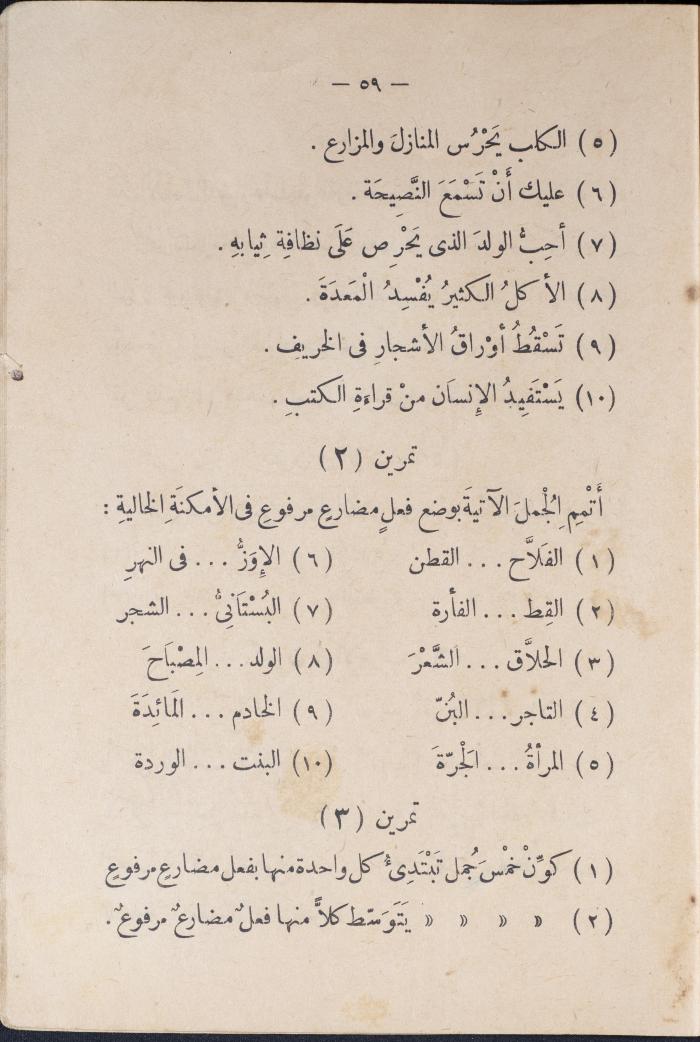 — ٥٩ —
(٥) الكلب يَحْرُس المنازلَ والمزارع .
(٦) عليك أَنْ تَسْمَعَ النَّصِيحَة .
(٧) أحِبُّ الولدَ الذى يَحْرِص عَلَى نظافةِ ثِيابهِ .
(٨) الأكلُ الكثيرُ يُفْسِدُ الْمَعدَةَ .
(٩) تَسْقُطُ أوْراقُ الأشجارِ فى الخريفِ .
(١٠) يَسْتَفِيدُ الإنسَان منْ قراءةِ الكتبِ .
تمرين (٢)
أَتْمِمِ الْجُملَ الآتيةَ بوضع فعلٍ مضارعٍ مرفوعٍ فى الأمكنَةِ الخاليةِ :
(١) الفَلاَّح ... القطن
(٢) القِط ... الفأرة
(٣) الحلاَّق ... الشَّعْرَ
(٤) التاجر ... البُنّ
(٥) المرأةُ ... الْجَرّةَ
(٦) الإوَزُّ ... فى النهرِ
(٧) البُسْتَانِىُّ ... الشجر
(٨) الولد ... المِصْبَاحَ
(٩) الخادم ... المَائِدَةَ
(١٠) البنت ... الوردة
تمرين (٣)
(١) كوِّنْ خمْسَ جُمل تَبْتَدِئُ كل واحدة منها بفعل مضارعٍ مرفوعٍ
(٢) » » » » يَتَوَسّط كلاًّ منها فعلٌ مضارعٌ مرفوعٌ .